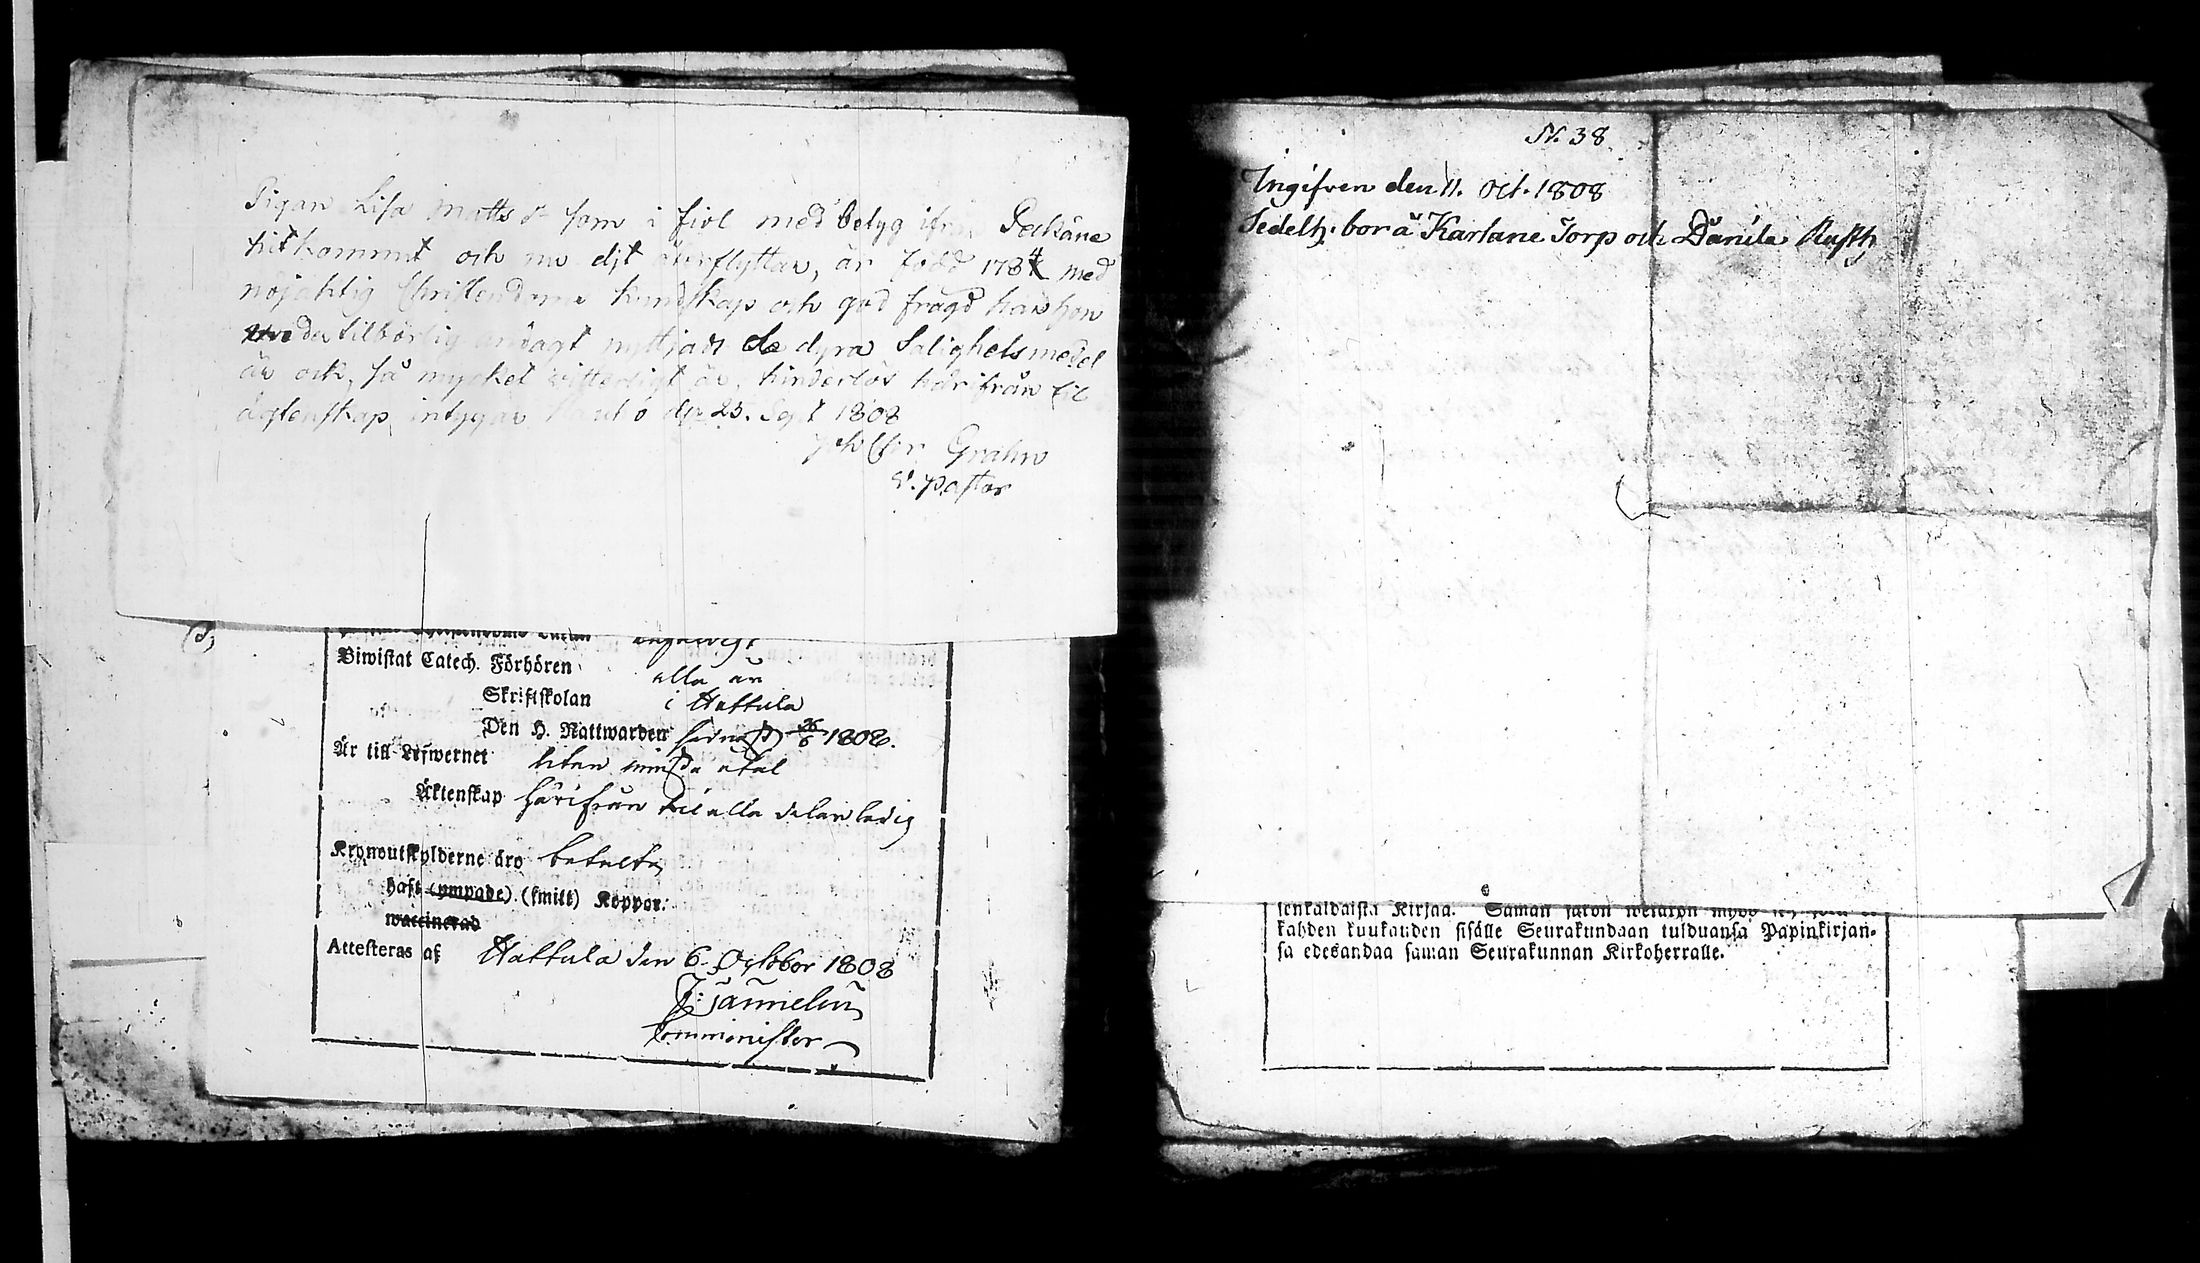 Pigan Lisa Matts dr som i fiol med betyg ifrån Pelkäne
hitkommit och nu dijt återflyttar, är född 1784 med
nöjaktig Christendoms kundskap och god frägd har hon
med tilbörlig andagt nyttjadt de dyra Salighetsmedel
är ock, så mycket vitterligt är, hinderlös härifrån til
ägtenskap, intygar d. 25. Sept 1808
Grahn
V. Pastor
Biwistat Catech. Förhören alla år
Skriftskolan i Hattula
Den H. Nattwarden sednast 26/6 1808.
Är till Lefwernet utan minsta åtal
Äktenskap härifrån til alla delar ledig
Kronoutskylderne äro betalta
haft (ympade) (smitt) Koppor.
waccinerad
Attesteras af Hattula den 6. October 1808
Comminister
N. 38
Ingifven den 11. Oct. 1808
Sedelh. bor å Karlane Torp och Danila Rusth.
kahden kuukauden sisälle Seurakundaan tulduansa Papinkirjan-
sa edesandaa saman Seurakunnan Kirkoherralle.